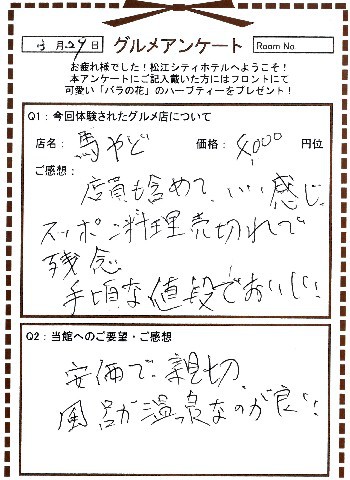 5月29日 グルメアンケート Room No
お疲れ様でした！松江シティホテルへようこそ！
本アンケートにご記入戴いた方にはフロントにて
可愛い「バラの花」のハーブティーをプレゼント！
Q1：今回体験されたグルメ店について
店名： 馬やど 価格： 4,000 円位
ご感想：
店員も含めて、いい感じ
スッポン料理売切れで
残念
手頃な値段でおいしい！
Q2：当館へのご要望・ご感想
安価で親切、
風呂が温泉なのが良い！